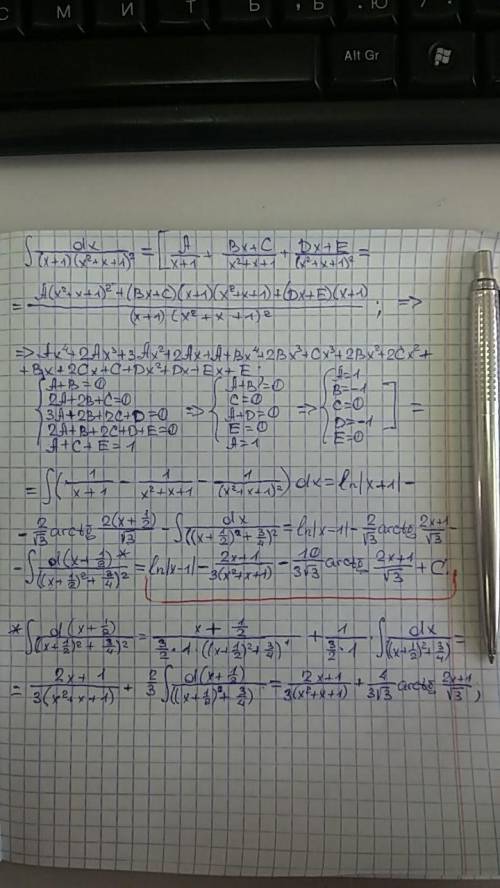 С М И Т Ь Б Ю
Alt Gr
∫ dx/((x+1)(x²+x+1)²) = [ A/(x+1) + (Bx+C)/(x²+x+1) + (Dx+E)/(x²+x+1)² =
= (A(x²+x+1)²+(Bx+C)(x+1)(x²+x+1)+(Dx+E)(x+1))/((x+1)(x²+x+1)²) ; =>
=> Ax⁴+2Ax³+3Ax²+2Ax+A+Bx⁴+2Bx³+Cx³+2Bx²+2Cx²+
+Bx+2Cx+C+Dx²+Dx+Ex+E ;
{ A+B=0 { A+B=0 { A=1
2A+2B+C=0 C=0 B=-1
3A+2B+2C+D=0 => A+D=0 => C=0 ] =
2A+B+2C+D+E=0 E=0 D=-1
A+C+E=1 A=1 E=0
= ∫ (1/(x+1) - 1/(x²+x+1) - 1/(x²+x+1)²) dx = ln|x+1| -
- 2/√3 arctg 2(x+½)/√3 - ∫ dx/((x+½)²+¾)² = ln|x-1| - 2/√3 arctg (2x+1)/√3 -
- ∫ d(x+½)*/((x+½)²+¾)² = ln|x-1| - (2x+1)/(3(x²+x+1)) - 10/(3√3) arctg (2x+1)/√3 + C.
* ∫ d(x+½)/((x+½)²+¾)² = (x+½)/(3/2·1·((x+½)²+¾)¹) + 1/(3/2·1) · ∫ dx/((x+½)²+¾) =
= (2x+1)/(3(x²+x+1)) + 2/3 ∫ d(x+½)/((x+½)²+¾) = (2x+1)/(3(x²+x+1)) + 4/(3√3) arctg (2x+1)/√3 ,